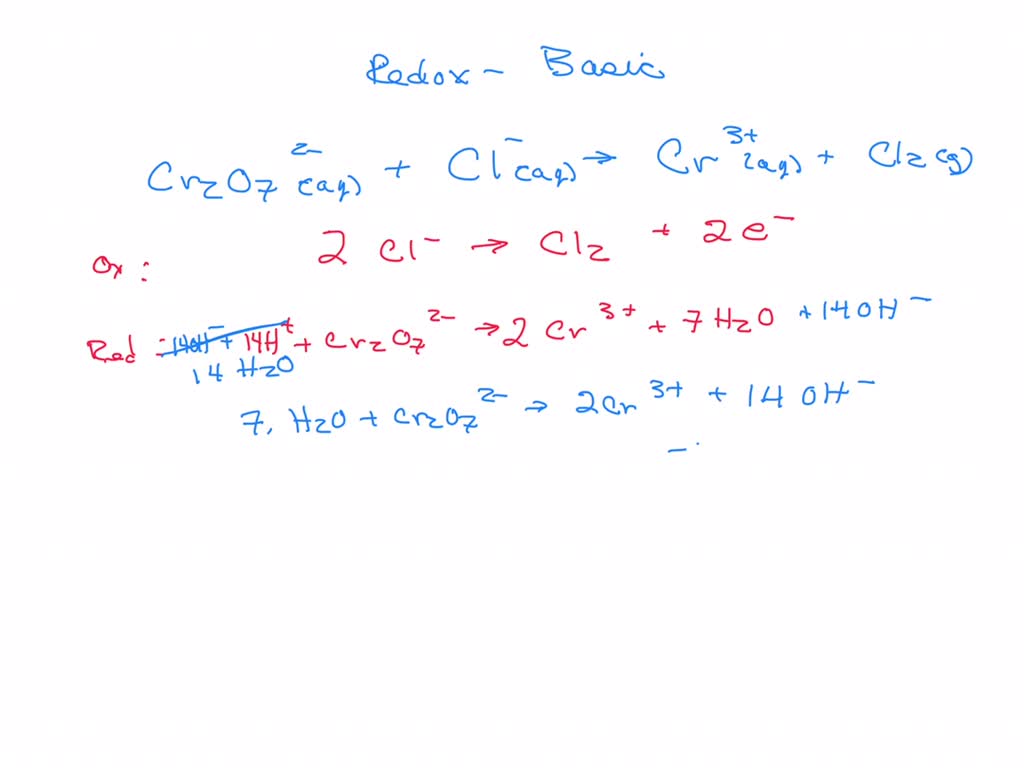 Redox - Basic
Cr₂O₇²⁻(aq) + Cl⁻(aq) → Cr³⁺(aq) + Cl₂(g)
Ox: 2 Cl⁻ → Cl₂ + 2e⁻
Red: 14OH⁻ + 14H⁺ + Cr₂O₇²⁻ → 2 Cr³⁺ + 7 H₂O + 14OH⁻
14 H₂O
7. H₂O + Cr₂O₇²⁻ → 2Cr³⁺ + 14 OH⁻
-